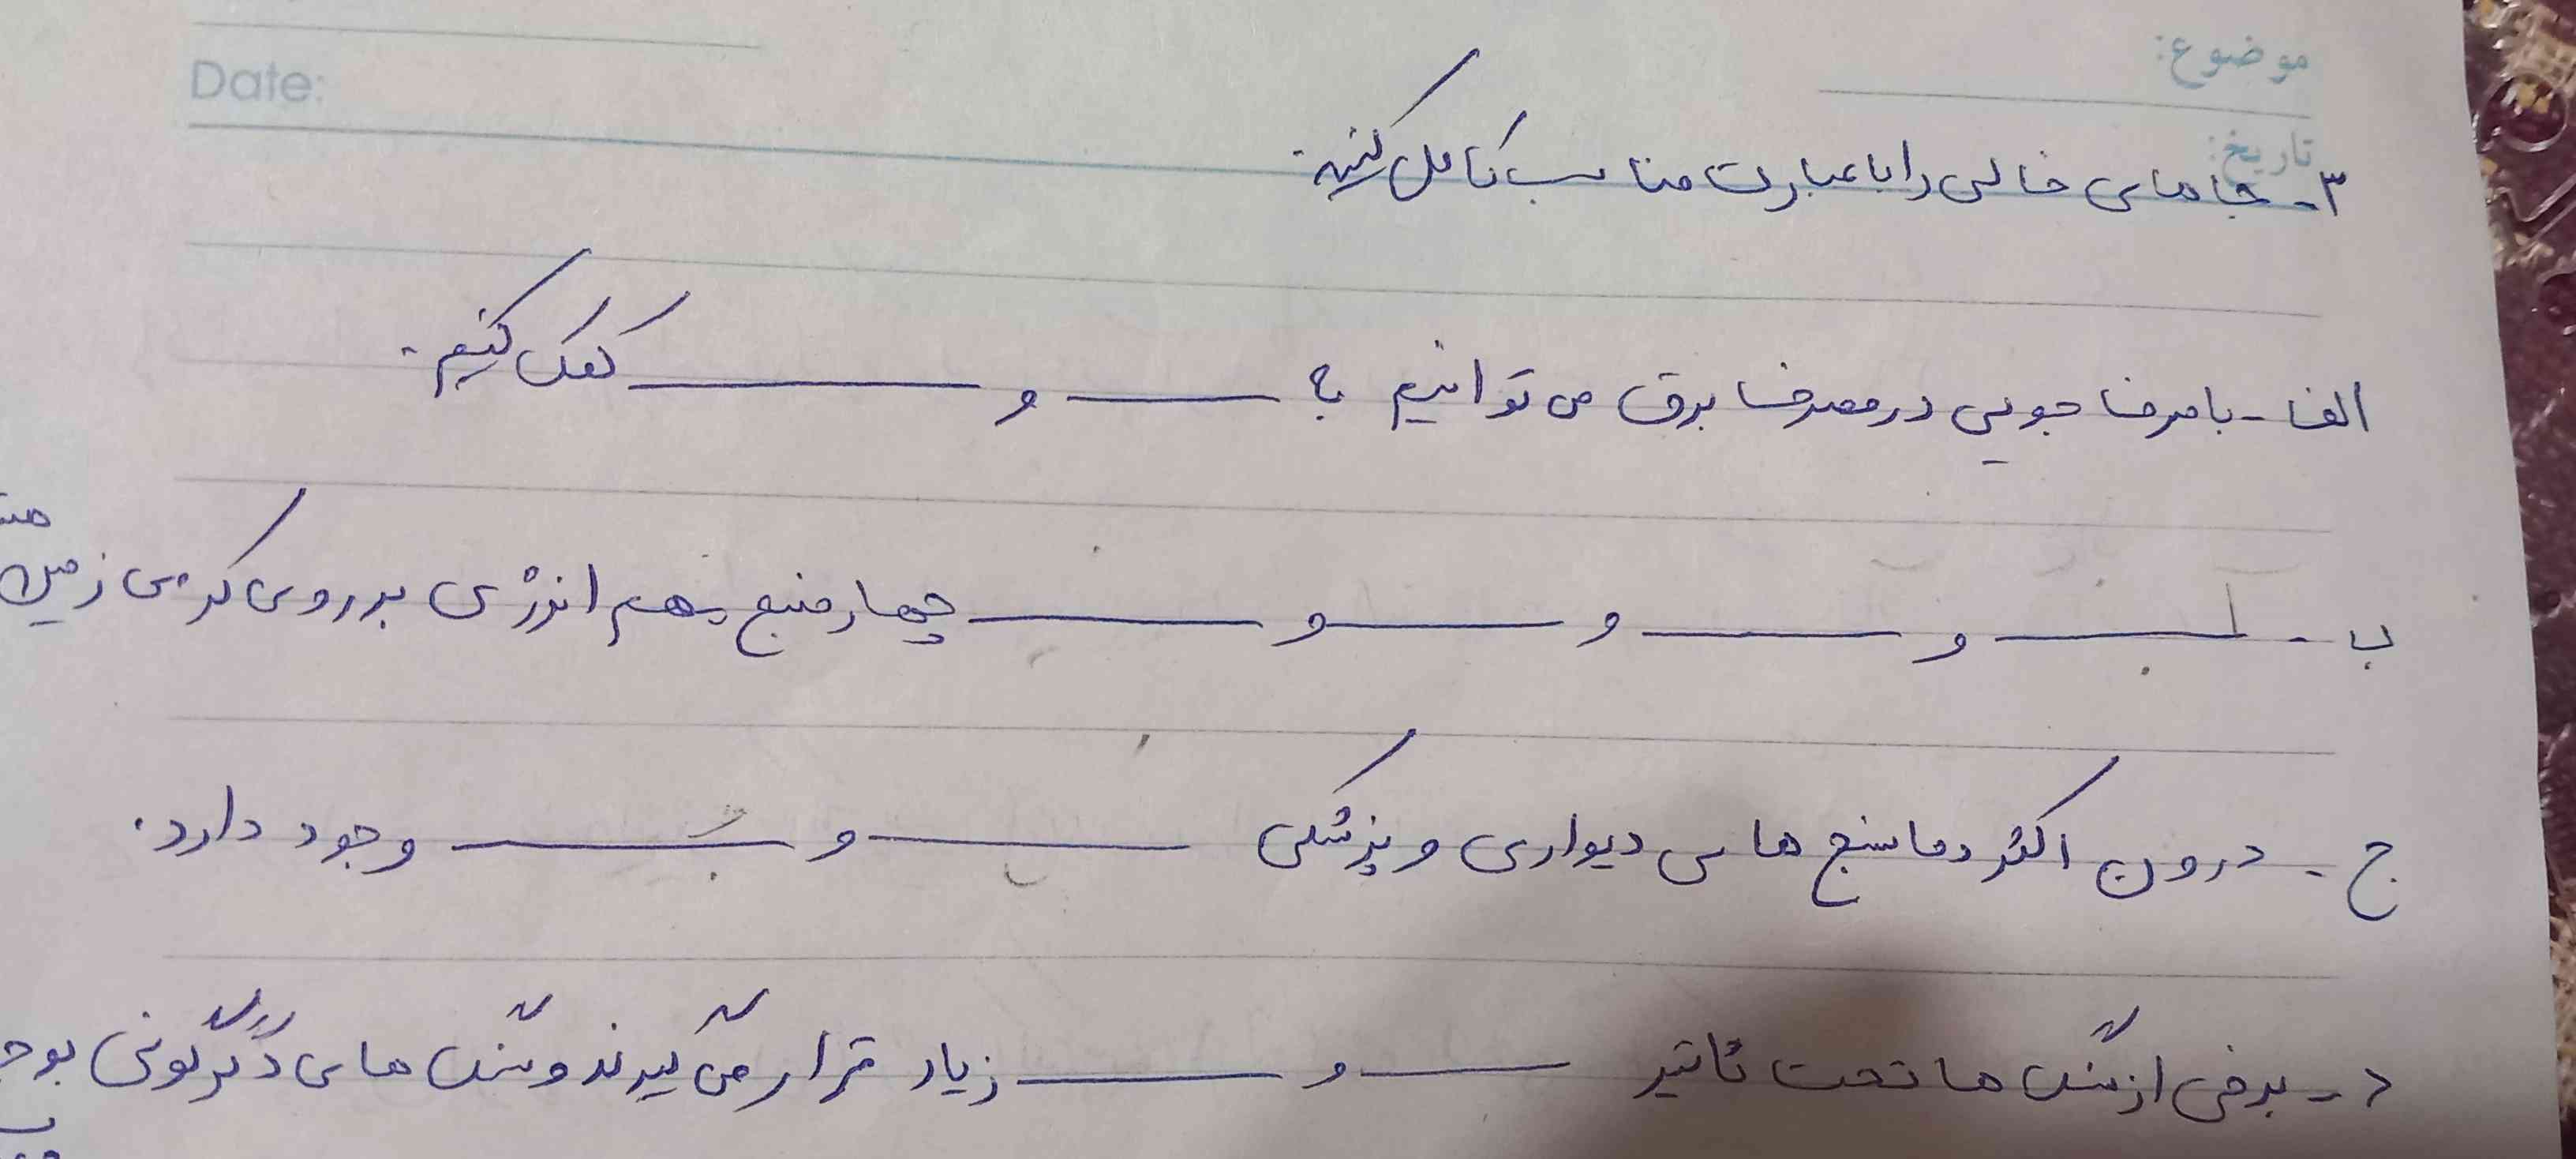 موضوع:
Date:
تاریخ:
۳- جاهای خالی را با عبارت مناسب کامل کنید.
الف - با صرفه جویی در مصرف برق می توانیم به ــــــ و ــــــ کمک کنیم.
ب - ــــــ و ــــــ و ــــــ و ــــــ چهار منبع مهم انرژی بر روی کره ی زمین
ج - درون اکثر دماسنج های دیواری و پزشکی ــــــ و ــــــ وجود دارد.
د - برخی از سنگ ها تحت تاثیر ــــــ و ــــــ زیاد قرار می گیرند و سنگ های دگرگونی بوج